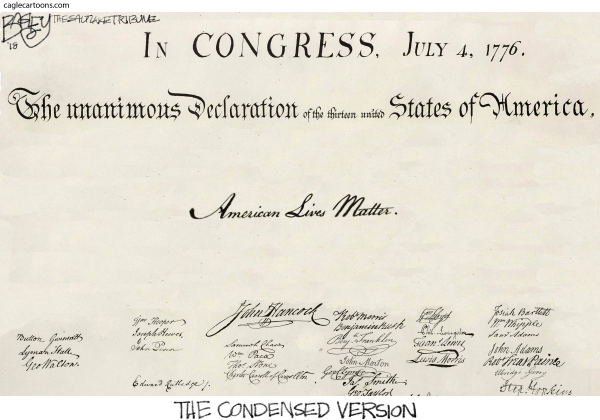 caglecartoons.com
BAGLEY THE SALT LAKE TRIBUNE
'18
IN CONGRESS, JULY 4, 1776.
The unanimous Declaration of the thirteen united States of America,
American Lives Matter.
Button Gwinnett
Lyman Hall
Geo Walton.
Wm Hooper
Joseph Hewes
John Penn
Edward Rutledge
John Hancock
Samuel Chase
Wm Paca
Thos Stone
Charles Carroll of Carrollton
Robt Morris
Benjamin Rush
Benj Franklin
John Morton
Geo Clymer
Jas Smith
Geo Taylor
Phil Livingston
Lewis Morris
Josiah Bartlett
Wm Whipple
Saml Adams
John Adams
Robt Treat Paine
Elbridge Gerry
Step Hopkins
THE CONDENSED VERSION